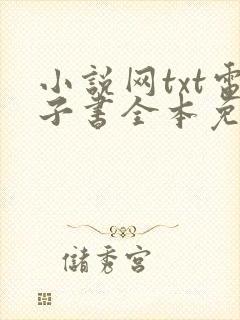 小説网txt電
子書全本免
儲秀宮